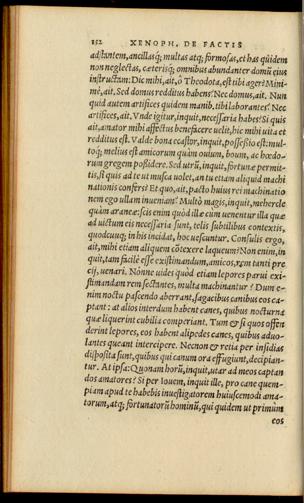 152 XENOPH. DE FACTIS
adstantem, ancillasq; multas atq; formosas, et has quidem
non neglectas, cæterisq; omnibus abundanter domũ eius
instructam: Dic mihi, ait, ò Theodota, est tibi ager? Mini-
mè, ait. Sed domus redditus habens? Nec domus, ait. Nun
quid autem artifices quidem manib. tibi laborantes? Nec
artifices, ait. Vnde igitur, inquit, necessaria habes? Si quis
ait, amator mihi affectus benefacere uelit, hic mihi uita et
redditus est. Valde bona ecastor, inquit, possessio est: mul-
toq; melius est amicorum quàm ouium, boum, ac hœdo-
rum gregem possidere. Sed utrũ, inquit, fortunæ permit-
tis, si quis ad te ut musca uolet, an tu etiam aliquid machi
nationis confers? Et quo, ait, pacto huius rei machinatio
nem ego ullam inueniam? Multò magis, inquit, mehercle
quàm araneæ: scis enim quòd illæ cum uenentur illa quæ
ad uictum eis necessaria sunt, telis subtilibus contextis,
quodcunq; in his incidat, hoc uescuntur. Consulis ergo,
ait, mihi etiam aliquem cõtexere laqueum? Non enim, in
quit, tam facilè esse existimandum, amicos, rem tanti pre
cij, uenari. Nónne uides quòd etiam lepores parui exi-
stimandam rem sectantes, multa machinantur? Dum e-
nim noctu pascendo aberrant, sagacibus canibus eos ca-
ptant: at alios interdum habent canes, quibus nocturna
quæ liquerint cubilia comperiant. Tum & si quos offen
derint lepores, eos habent alipedes canes, quibus aduo-
lantes queant intercipere. Necnon & retia per insidias
disposita sunt, quibus qui canum ora effugiunt, decipian-
tur. At ipsa: Quonam horũ, inquit, utar ad meos captan
dos amatores? Si per Iouem, inquit ille, pro cane quem-
piam apud te habebis inuestigatorem huiuscemodi ama-
torum, atq; fortunatorũ hominũ, qui quidem ut primum
eos